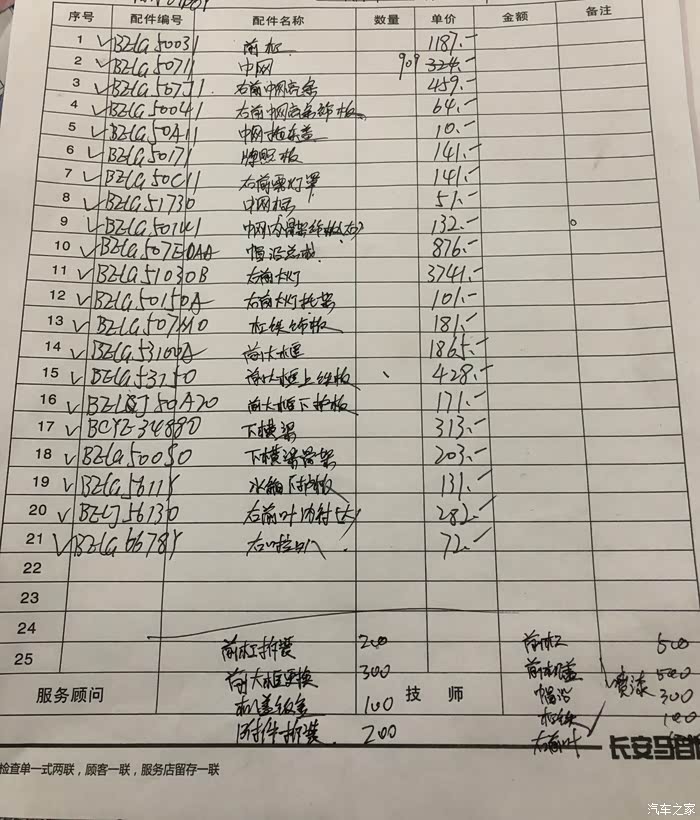 序号 配件编号 配件名称 数量 单价 金额 备注
1 BZLG 50031 前杠 1187.-
2 BZLG 50711 中网 909 324.-
3 右前中网亮条 459.-
4 BZLG 50041 右前中网亮条饰板 64.-
5 BZLG 50A11 中网拖车盖 10.-
6 BZLG 50171 牌照板 141.-
7 BZLG 50C11 右前雾灯罩 141.-
8 BZLG 51730 中网标 51.-
9 BZLG 中网内骨架 132.-
10 BZLG 507E0AA 帽沿总成 876.-
11 BZLG 51030B 右前大灯 3741.-
12 BZLG 50150A 右前大灯托架 101.-
13 BZLG 507M0 杠铁饰板 181.-
14 BZLG 53100A 前大框 1865.-
15 53150 前大框上饰板 428.-
16 50A20 前大框下护板 171.-
17 34880 下横梁 313.-
18 BZLG 50050 下横梁骨架 203.-
19 BZLG 5611Y 水箱下护板 131.-
20 56130 右前叶内衬(右) 282.-
21 BZLG 6678Y 右喇叭 72.-
22
23
24
25 前杠拆装 200 前杠 500
前大框更换 300 前机盖 500
服务顾问 技师 喷漆
机盖钣金 100 帽沿 300
附件拆装 200 右前叶
长安马自
检查单一式两联，顾客一联，服务店留存一联
汽车之家